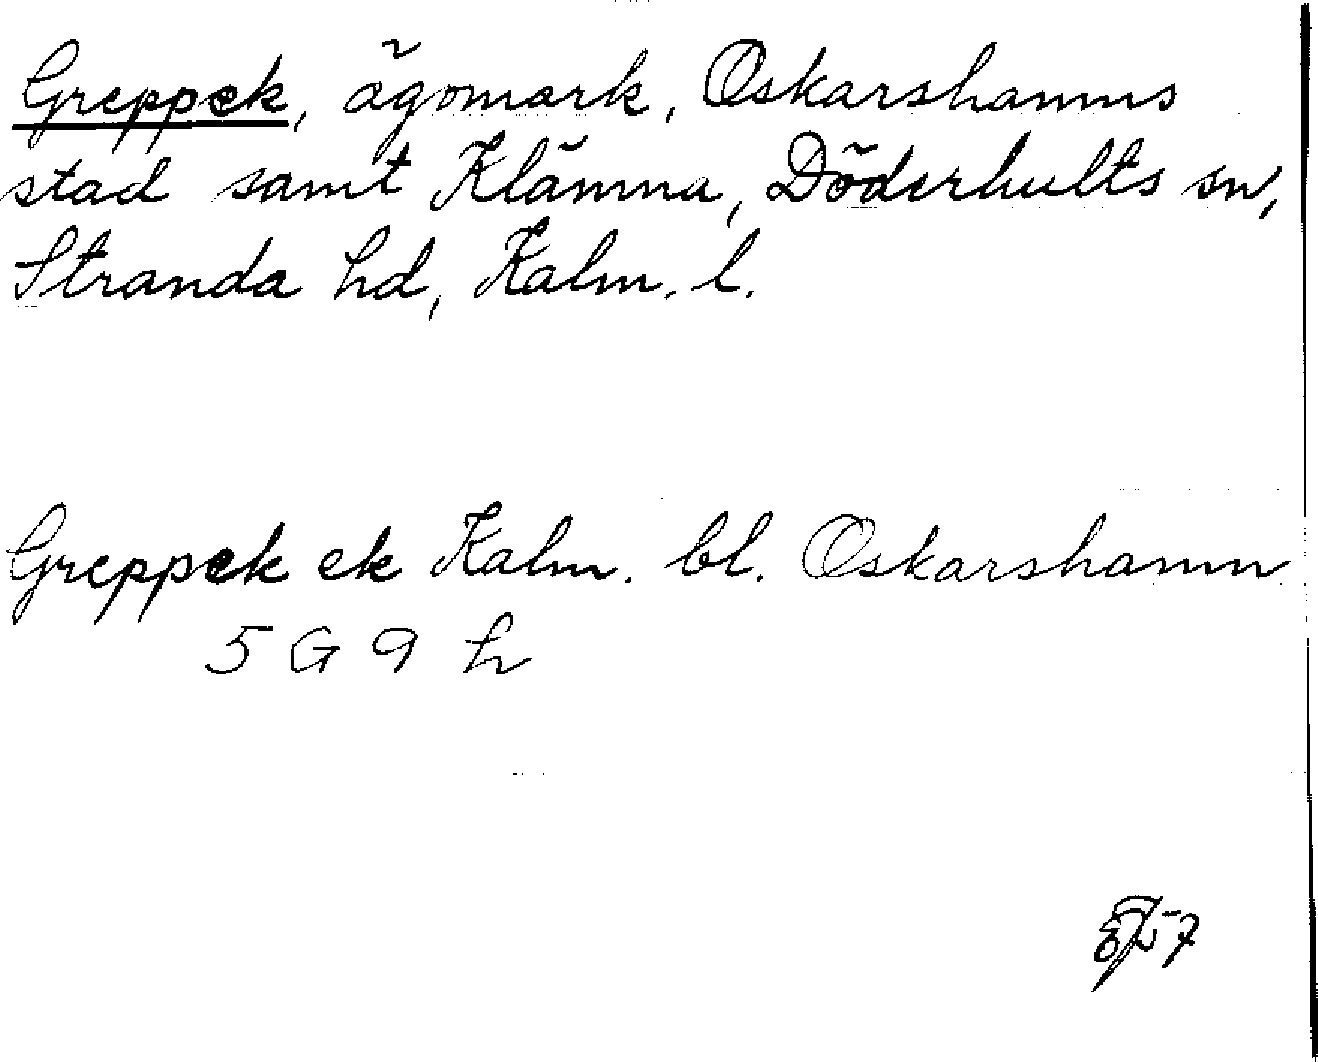 Greppek, ägomark, Oskarshamns
stad samt Klämna, Döderhults sn,
Stranda hd, Kalm. l.
Greppek ek Kalm. bl. Oskarshamn
5 G 9 h